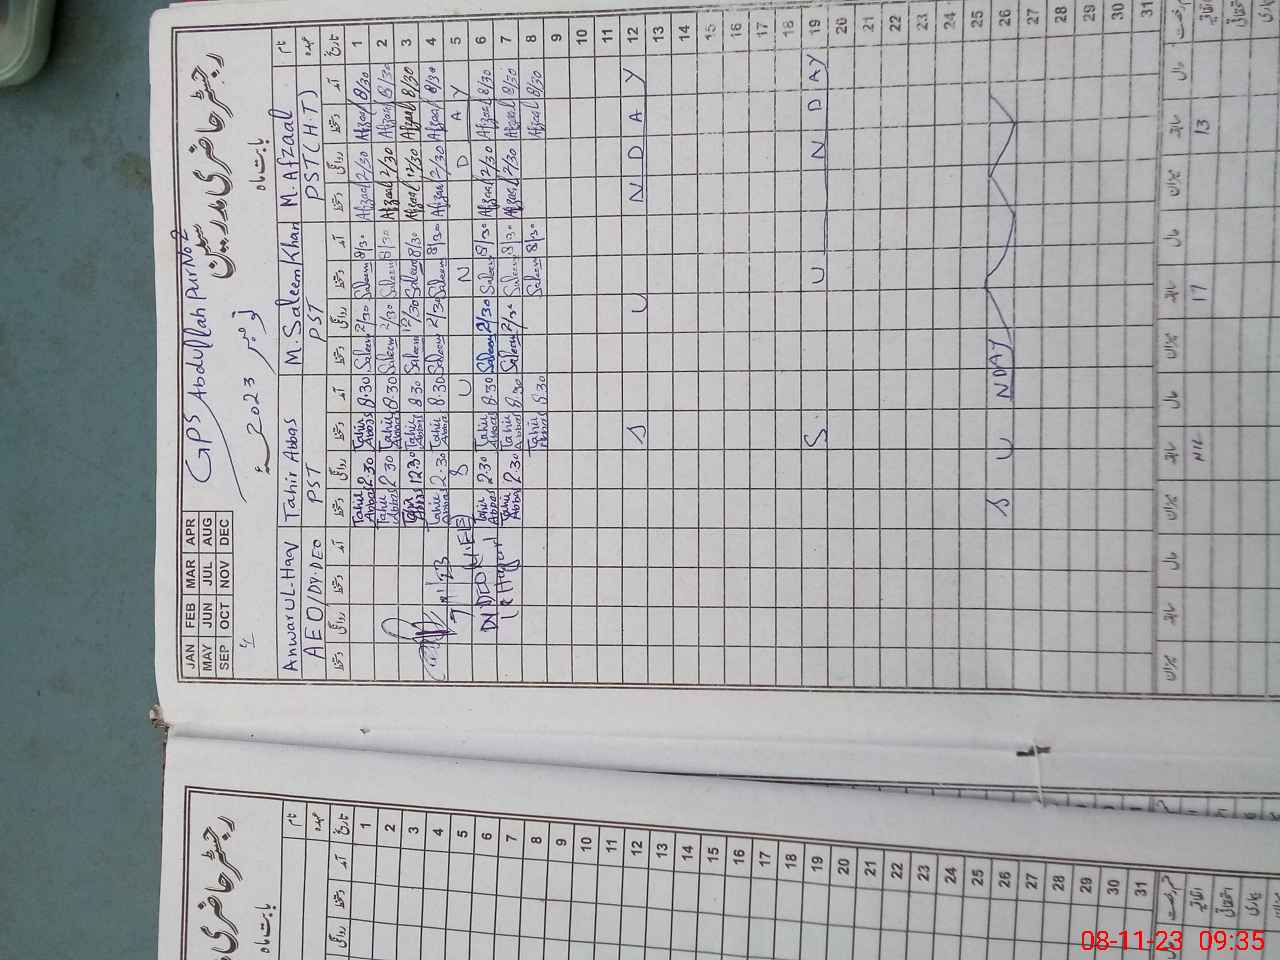 GPS Abdullah Pur No 2
رجسٹر حاضری مدرسین
بابت ماہ نومبر 2023ء
JAN FEB MAR APR
MAY JUN JUL AUG
SEP OCT NOV DEC
نام M. Afzaal M. Saleem Khan Tahir Abbas Anwar UL-Haq
عہدہ PST (H.T) PST PST AEO/DY.DEO
تاریخ آمد دستخط روانگی دستخط آمد دستخط روانگی دستخط آمد دستخط روانگی دستخط آمد دستخط روانگی دستخط
1 8/30 Afzaal 2/30 Afzaal 8/30 Saleem 2/30 Saleem 8.30 Tahir Abbas 2.30 Tahir Abbas
2 8/30 Afzaal 2/30 Afzaal 8/30 Saleem 2/30 Saleem 8.30 Tahir Abbas 2.30 Tahir Abbas
3 8/30 Afzaal 12/30 Afzaal 8/30 Saleem 12/30 Saleem 8.30 Tahir Abbas 12.30 Tahir Abbas
4 8/30 Afzaal 2/30 Afzaal 8/30 Saleem 2/30 Saleem 8.30 Tahir Abbas 2.30 Tahir Abbas
5 S U N D A Y
6 8/30 Afzaal 2/30 Afzaal 8/30 Saleem 2/30 Saleem 8.30 Tahir Abbas 2.30 Tahir Abbas
7 8/30 Afzaal 2/30 Afzaal 8/30 Saleem 2/30 Saleem 8.30 Tahir Abbas 2.30 Tahir Abbas
8 8/30 Afzaal 8/30 Saleem 8.30 Tahir Abbas
9
10
11
12 S U N D A Y
13
14
15
16
17
18
19 S U N D A Y
20
21
22
23
24
25
26 S U NDAY
27
28
29
30
31
حال سابقہ میزان حال سابقہ میزان حال سابقہ میزان حال سابقہ میزان
اتفاقیہ 13 17 NIL
رجسٹر حاضری
بابت ماہ
نام
عہدہ
تاریخ آمد دستخط روانگی
1
2
3
4
5
6
7
8
9
10
11
12
13
14
15
16
17
18
19
20
21
22
23
24
25
26
27
28
29
30
31
08-11-23 09:35